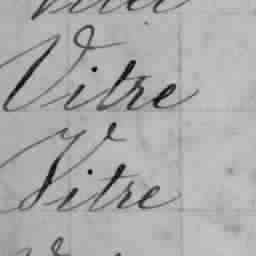 Vitre
Vitre